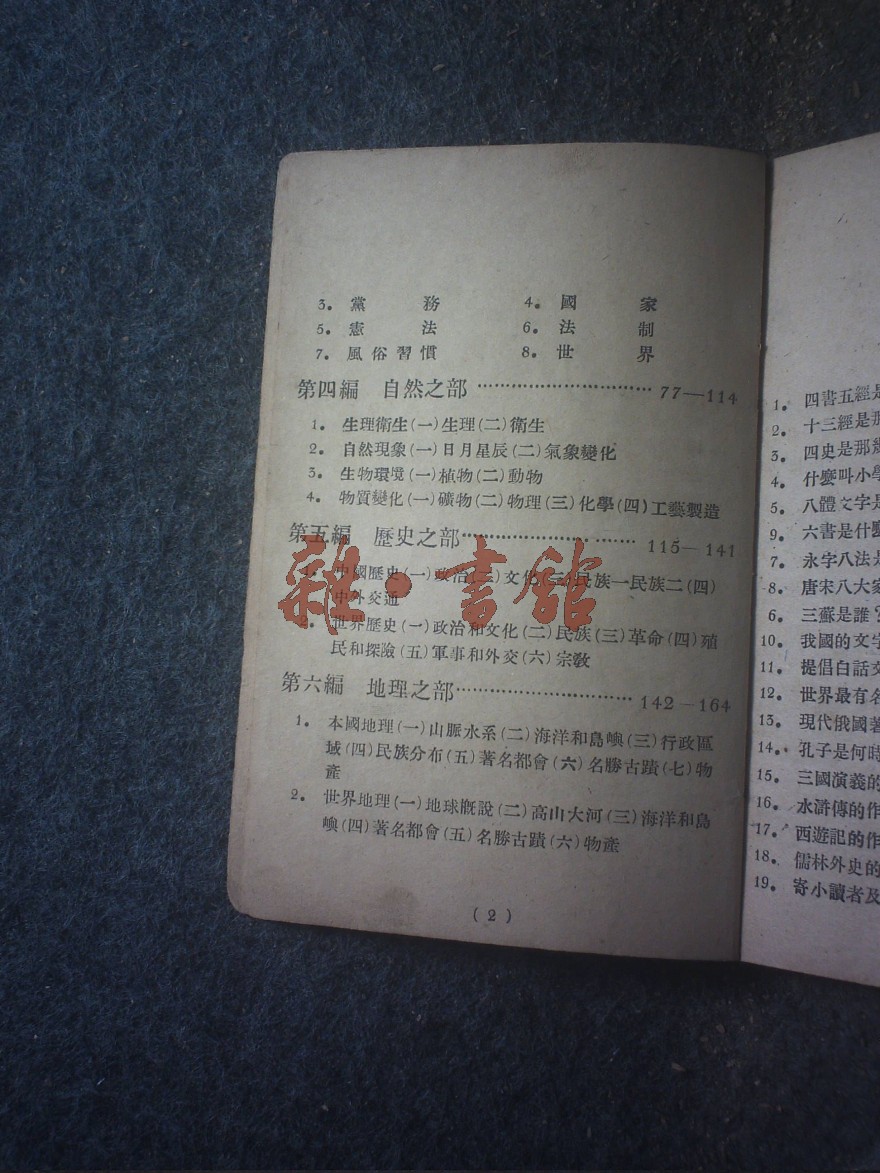 3. 黨務 4. 國家
5. 憲法 6. 法制
7. 風俗習慣 8. 世界
第四編 自然之部……………………………77—114
1. 生理衛生(一)生理(二)衛生
2. 自然現象(一)日月星辰(二)氣象變化
3. 生物環境(一)植物(二)動物
4. 物質變化(一)礦物(二)物理(三)化學(四)工藝製造
第五編 歷史之部……………………………115—141
1. 中國歷史(一)政治(二)文化(三)民族一民族二(四)
中外交通
2. 世界歷史(一)政治和文化(二)民族(三)革命(四)殖
民和探險(五)軍事和外交(六)宗敎
第六編 地理之部……………………………142—164
1. 本國地理(一)山脈水系(二)海洋和島嶼(三)行政區
域(四)民族分布(五)著名都會(六)名勝古蹟(七)物
產
2. 世界地理(一)地球槪說(二)高山大河(三)海洋和島
嶼(四)著名都會(五)名勝古蹟(六)物產
(2)
雜·書館
1. 四書五經是
2. 十三經是那
3. 四史是那幾
4. 什麼叫小學
5. 八體文字是
9. 六書是什麼
7. 永字八法是
8. 唐宋八大家
9. 三蘇是誰
10. 我國的文字
11. 提倡白話文
12. 世界最有名
13. 現代俄國著
14. 孔子是何時
15. 三國演義的
16. 水滸傳的作
17. 西遊記的作
18. 儒林外史的
19. 寄小讀者及